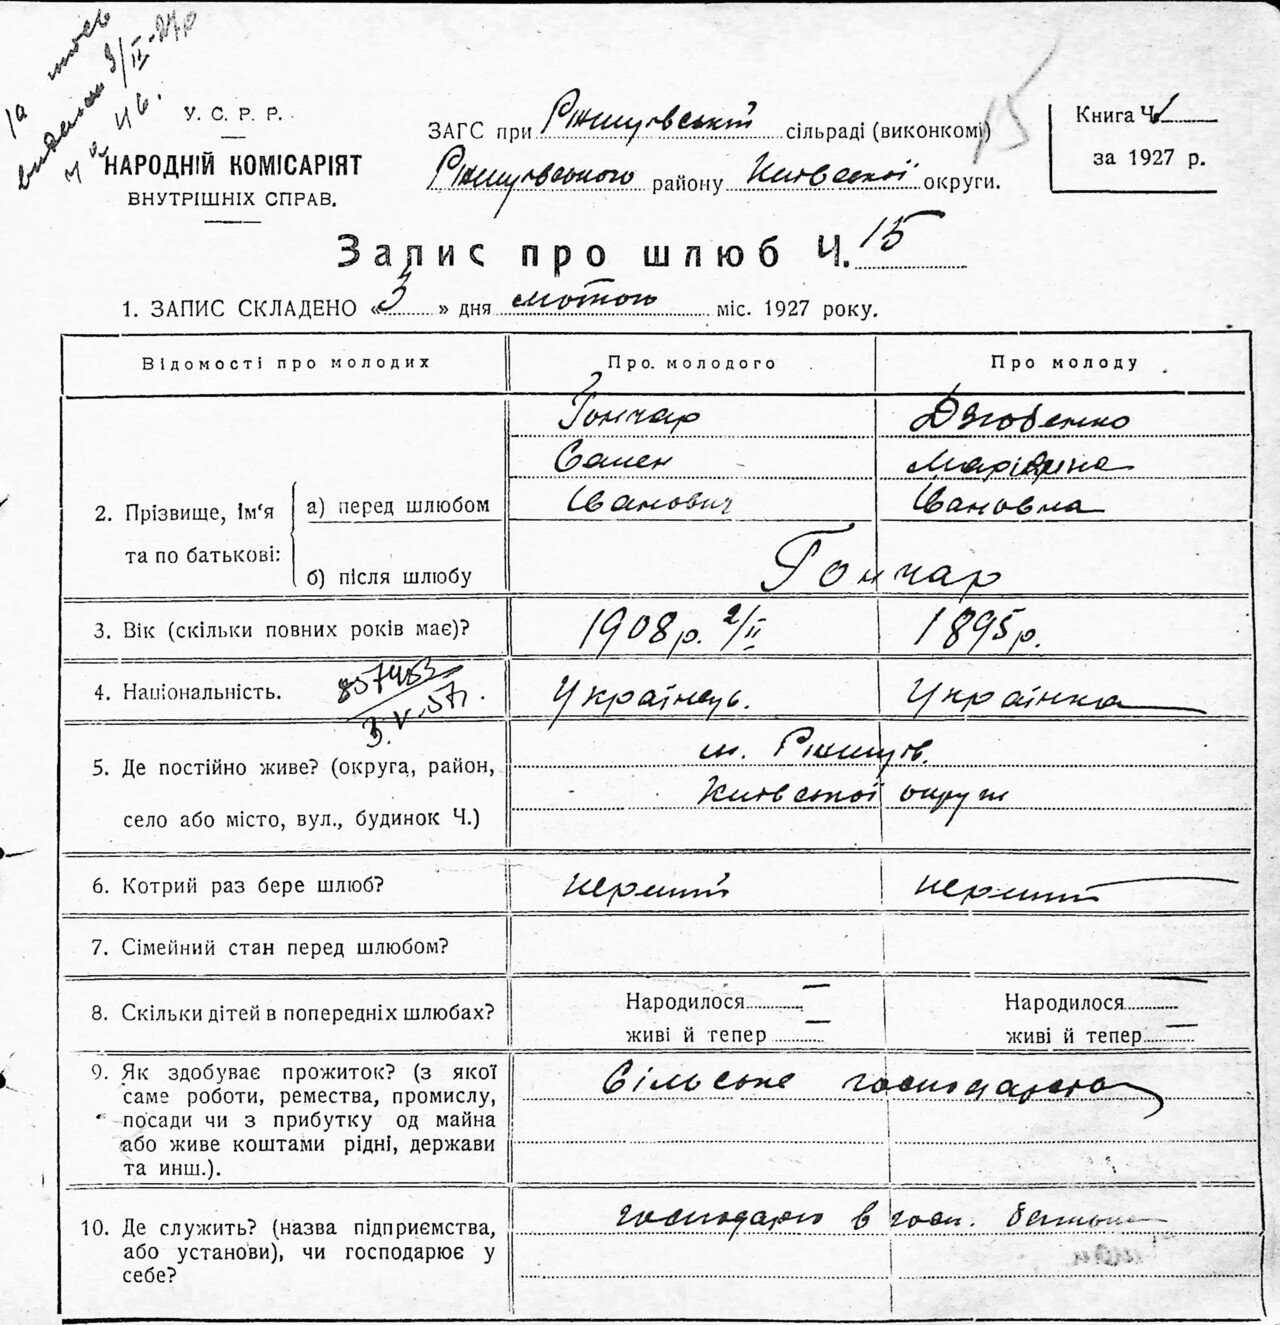 У. С. Р. Р.
НАРОДНІЙ КОМІСАРІЯТ
ВНУТРІШНІХ СПРАВ.
ЗАГС при Ржищівській сільраді (виконкомі)
Ржищівського району Київської округи.
15
Книга Ч. 1
за 1927 р.
Запис про шлюб Ч. 15
1. ЗАПИС СКЛАДЕНО «3» дня лютого міс. 1927 року.
Відомості про молодих
Про молодого
Про молоду
2. Прізвище, ім'я та по батькові:
а) перед шлюбом
Гончар
Семен
Іванович
Дзюбенко
Івановна
б) після шлюбу
Гончар
3. Вік (скільки повних років має)?
1908 р. 2/II
1895 р.
4. Національність.
3.V.57
Українець.
Українка
5. Де постійно живе? (округа, район,
село або місто, вул., будинок Ч.)
м. Ржищів.
Київської округи
6. Котрий раз бере шлюб?
перший
перший
7. Сімейний стан перед шлюбом?
8. Скільки дітей в попередніх шлюбах?
Народилося —
живі й тепер —
Народилося —
живі й тепер —
9. Як здобуває прожиток? (з якої
саме роботи, ремества, промислу,
посади чи з прибутку од майна
або живе коштами рідні, держави
та инш.).
Сільське господарство
10. Де служить? (назва підприємства,
або установи), чи господарює у
себе?
господарює в госп.